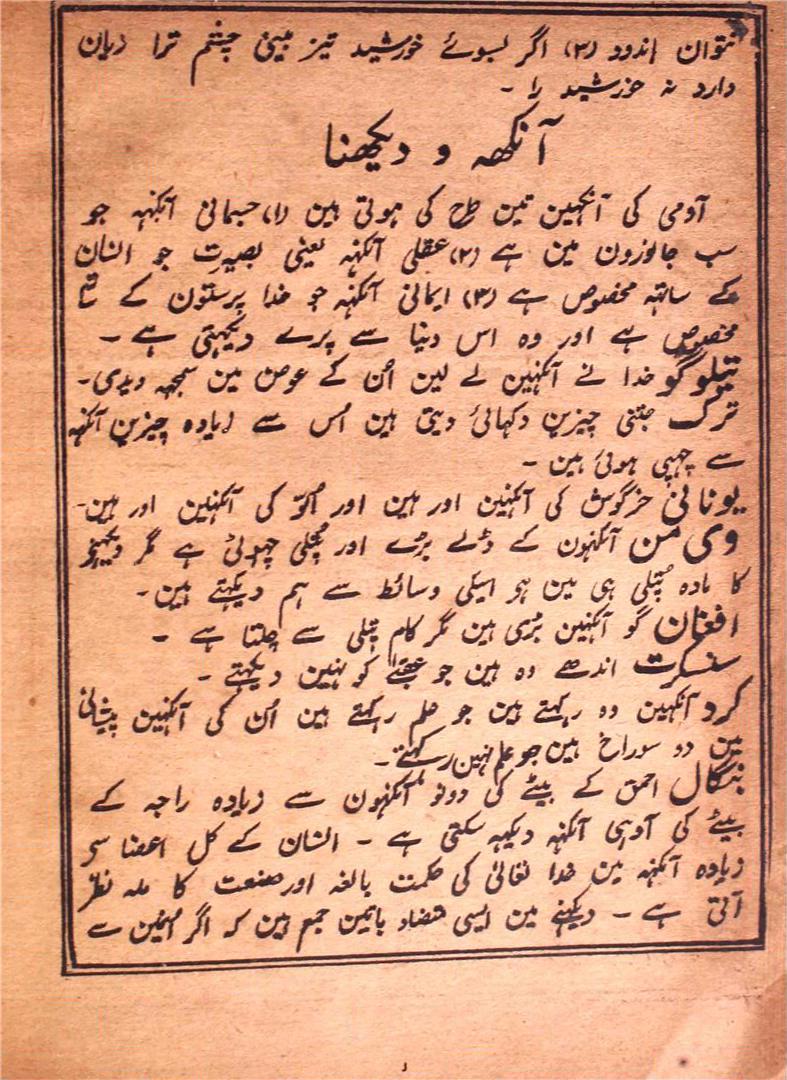 نتوان اندود (۲) اگر بسوئے خورشید تیز بینی چشم ترا زیان
دارد نہ خورشید را ۔
آنکھہ و دیکھنا
آدمی کی آنکہین تین طرح کی ہوتی ہین (۱) جسمانی آنکہہ جو
سب جانورون مین ہے (۲) عقلی آنکہہ یعنی بصیرت جو انسان
کے ساتہہ مخصوص ہے (۳) ایمانی آنکہہ جو خدا پرستون کے لئے
مخصوص ہے اور وہ اس دنیا سے پرے دیکہتی ہے ۔
تیلوگو خدا نے آنکہین لے لین اُن کے عوض مین سمجہہ دیدی ۔
ترک جتنی چیزین دکہائی دیتی ہین اُس سے زیادہ چیزین آنکہہ
سے چہپی ہوئی ہین ۔
یونانی خرگوش کی آنکہین اور ہین اور اُلّو کی آنکہین اور ہین ۔
وی من آنکہون کے ڈلے بڑے اور پتلی چہوٹی ہے مگر دیکہنے
کا مادہ پتلی ہی مین ہو اسکی وسائط سے ہم دیکہتے ہین ۔
افغان گو آنکہین بڑی ہین مگر کام پتلی سے چلتا ہے ۔
سنسکرت اندھے وہ ہین جو عقبےٰ کو نہین دیکہتے ۔
کرد آنکہین وہ رکہتے ہین جو علم رکہتے ہین اُن کی آنکہین پیشانی
مین دو سوراخ ہین جو علم نہین رکہتے ۔
بنگال احمق کے بیٹے کی دونو آنکہون سے زیادہ راجہ کے
بیٹے کی آدہی آنکہہ دیکہہ سکتی ہے ۔ انسان کے کل اعضا سے
زیادہ آنکہہ مین خدا تعالیٰ کی حکمت بالغہ اور صنعت کا ملہ نظر
آتی ہے ۔ دیکہنے مین ایسی متضاد باتین جمع ہین کہ اگر اُنمین سے